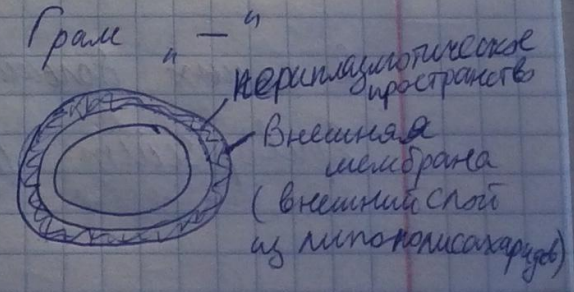 Грам "—"
периплазмотическое
пространство
Внешняя
мембрана
(внешний слой
из липополисахаридов)